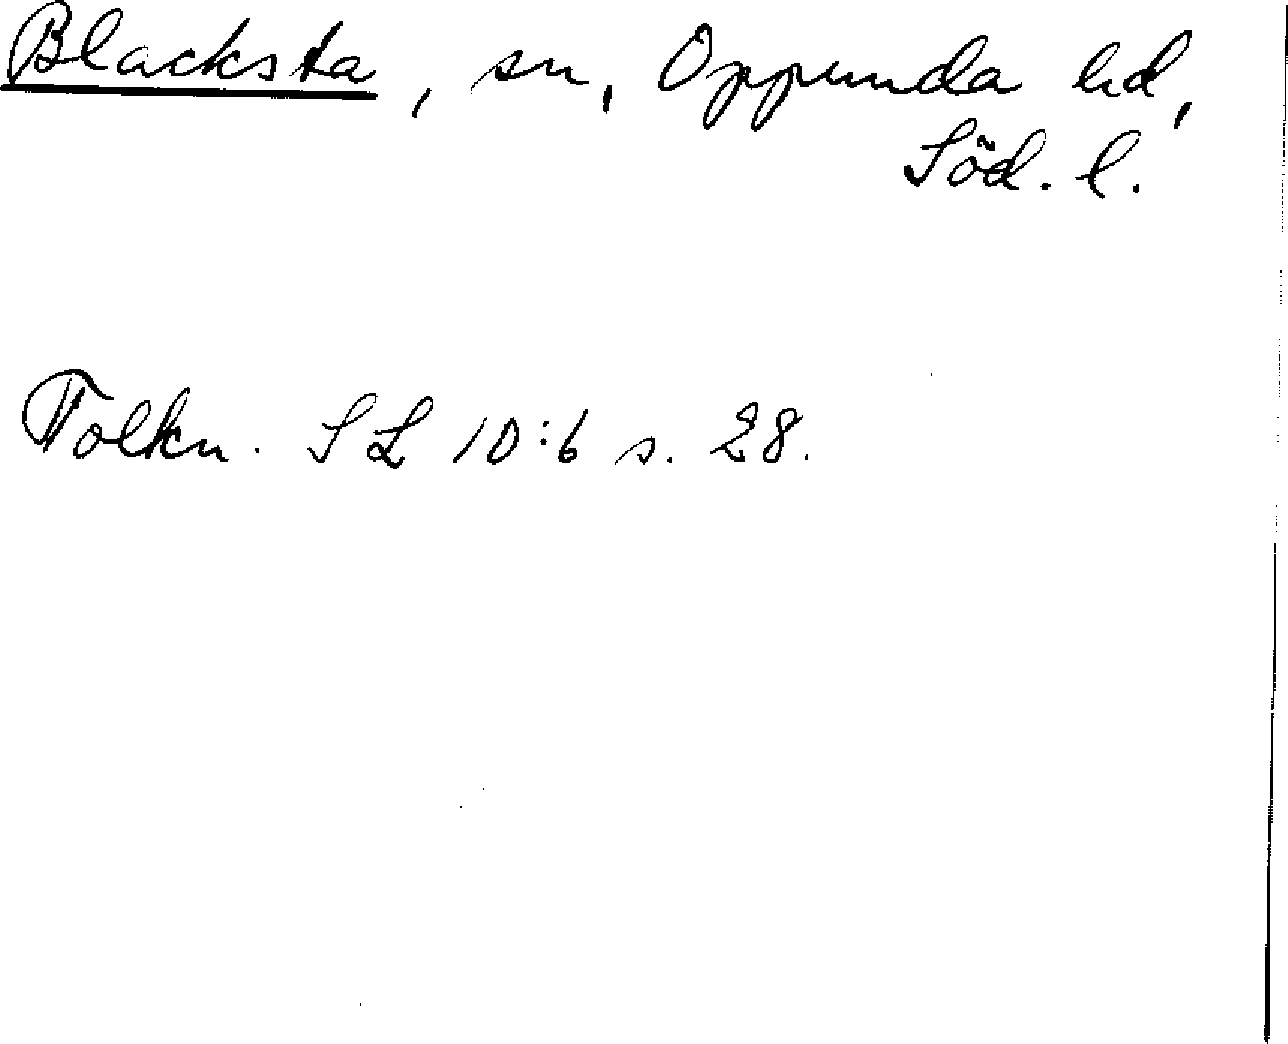 Blacksta, sn, Oppunda hd,
Söd. l.
Tolkn. SL 10:6 s. 28.